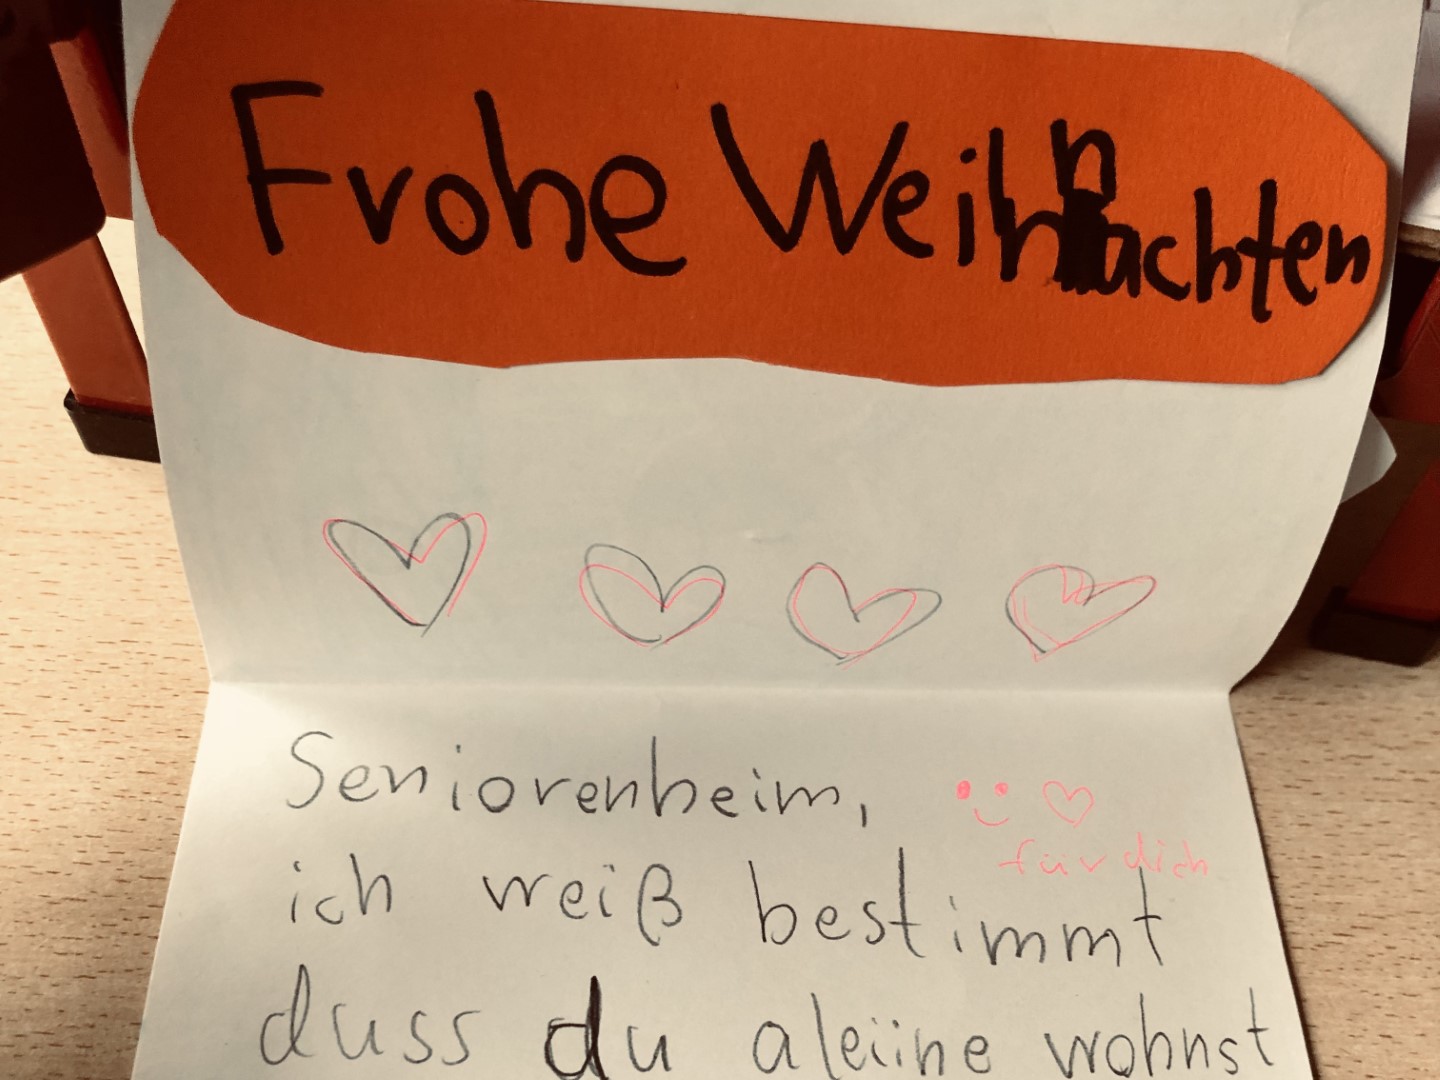 Frohe Weihnachten
Seniorenheim,
für dich
ich weiß bestimmt
duss du aleiine wohnst